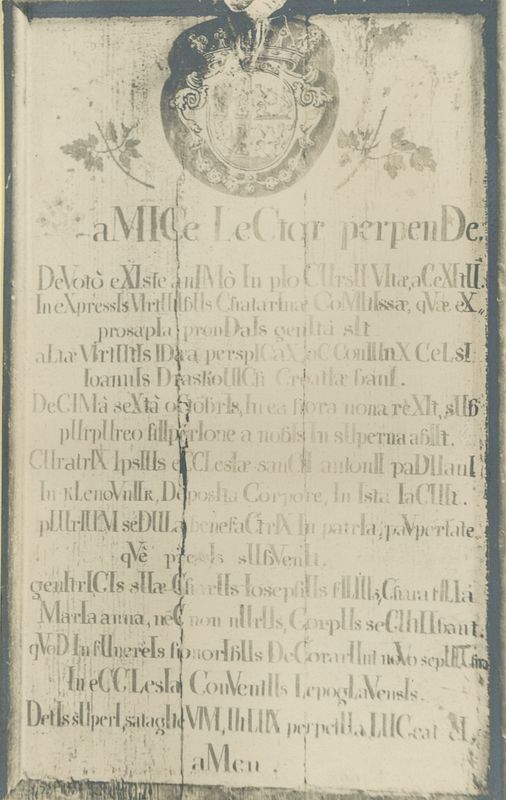 aMICe LeCtor perpenDe,
DeVotò eXIste anIMò In pIo CUrsU VItæ, aC eXItU
In eXpressIs VIrtUtIbUs CharIsInæ CoMItIssæ, qVæ eX
prosapIa pronDaIs genIta sIt
aLtæ VIrtUtIs IDæa, perspICaX, aC ConIUnX CeLsI
IoannIs DrasKoUICh CroatIæ banI.
DeCIMà seXtà oCtobrIs, In ea hora nona rèXIt, sUb
pUrpUreo sUperIore a nobIs In sUperna abIIt.
CUratrIX IpsIUs eCCLesIæ sanCtI antonII paDUanI
In KLenoVnIK, DeposIta Corpore, In Ista IaCUIt.
pLUrIUM seDULa benefaCtrIX In patrIa, paVpertate
qVè sUbVenIt.
genItrICIs sUæ CharUs IosephUs fILIUs, Chara fILIa
MarIa anna, nèC non nUrUs, CorpUs seCUtI Ibant.
qVoD In fUnerèIs honorIbUs DeCorarUnt noVo sepULChro
In eCCLesIa ConVentUs LepogLaVensIs.
DetIs sUperI, satagIte VIVI, Ut LUX perpetUa LUCeat eI.
aMen.